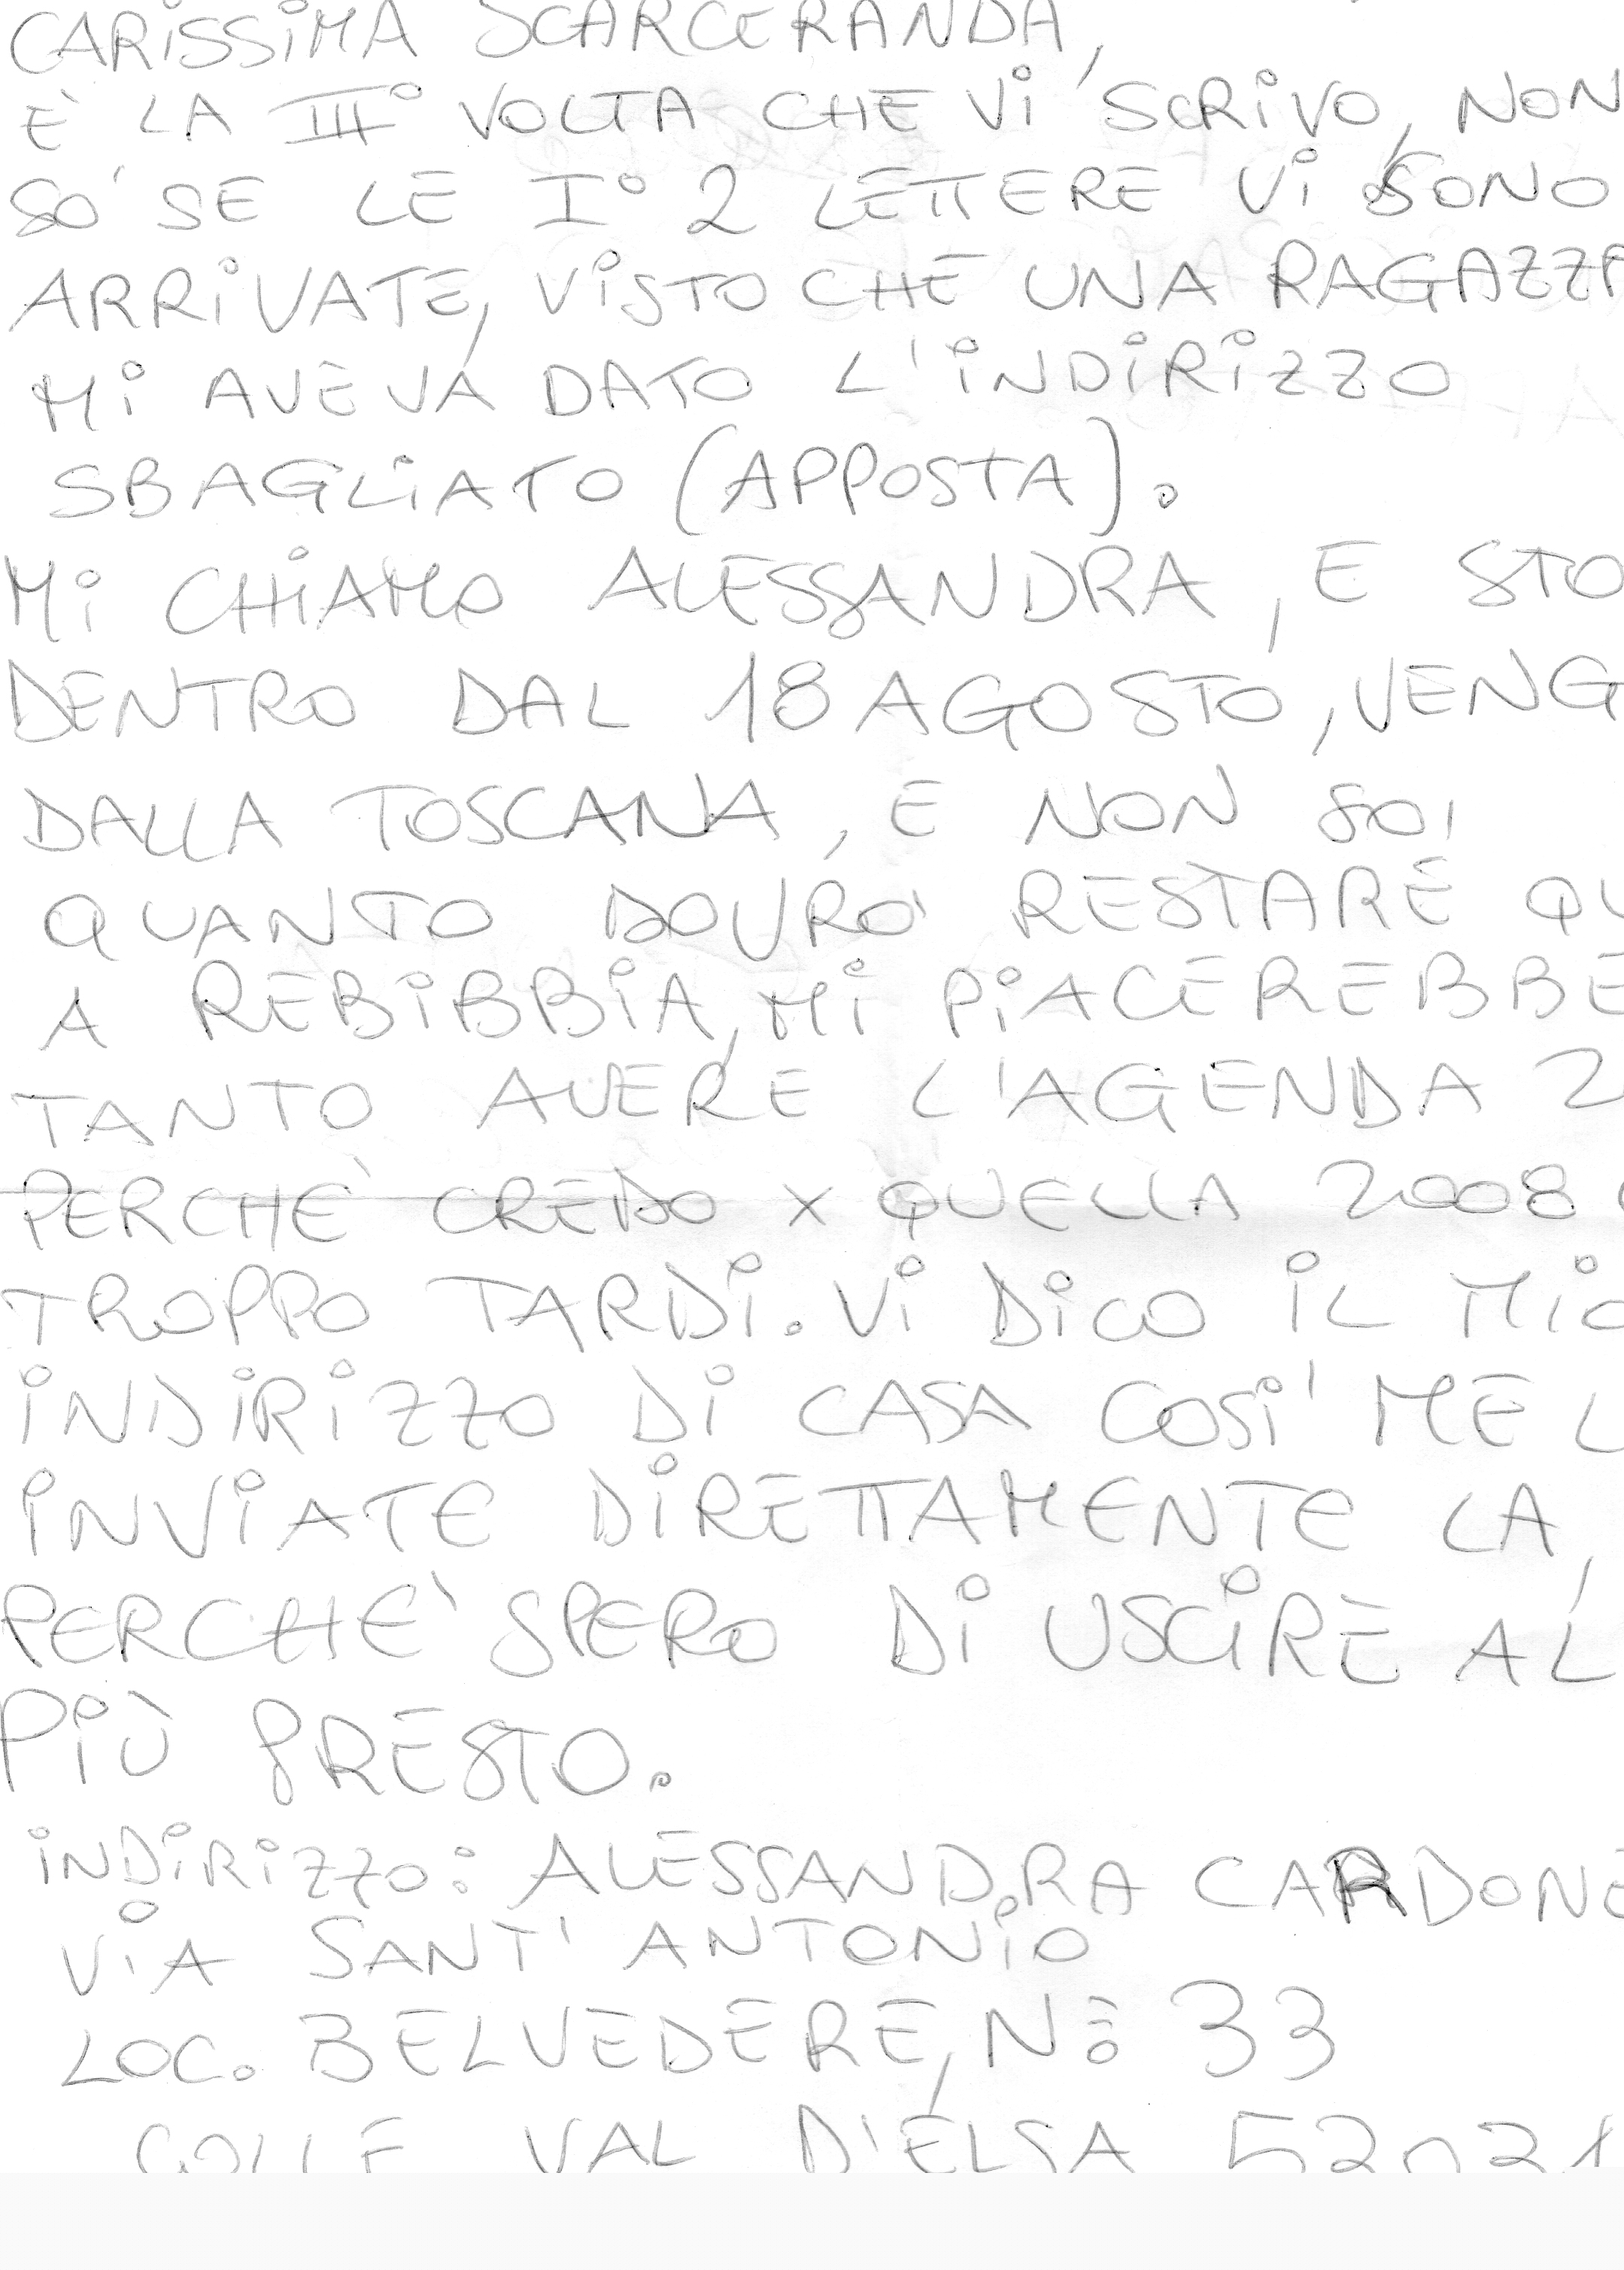 CARISSIMA SCARCERANDA,
E' LA III° VOLTA CHE VI SCRIVO, NON
SO' SE LE I° 2 LETTERE VI SONO
ARRIVATE, VISTO CHE UNA RAGAZZA
MI AVEVA DATO L'INDIRIZZO
SBAGLIATO (APPOSTA).
MI CHIAMO ALESSANDRA, E STO
DENTRO DAL 18 AGOSTO, VENG
DALLA TOSCANA, E NON SO,
QUANTO DOVRO' RESTARE QU
A REBIBBIA, MI PIACEREBBE
TANTO AVERE L'AGENDA 2
PERCHE' CREDO X QUELLA 2008
TROPPO TARDI. VI DICO IL MIO
INDIRIZZO DI CASA COSI' ME L
INVIATE DIRETTAMENTE LA,
PERCHE' SPERO DI USCIRE AL
PIÙ PRESTO.
INDIRIZZO: ALESSANDRA CARDONE
VIA SANT'ANTONIO
LOC. BELVEDERE, N° 33
COLLE VAL D'ELSA